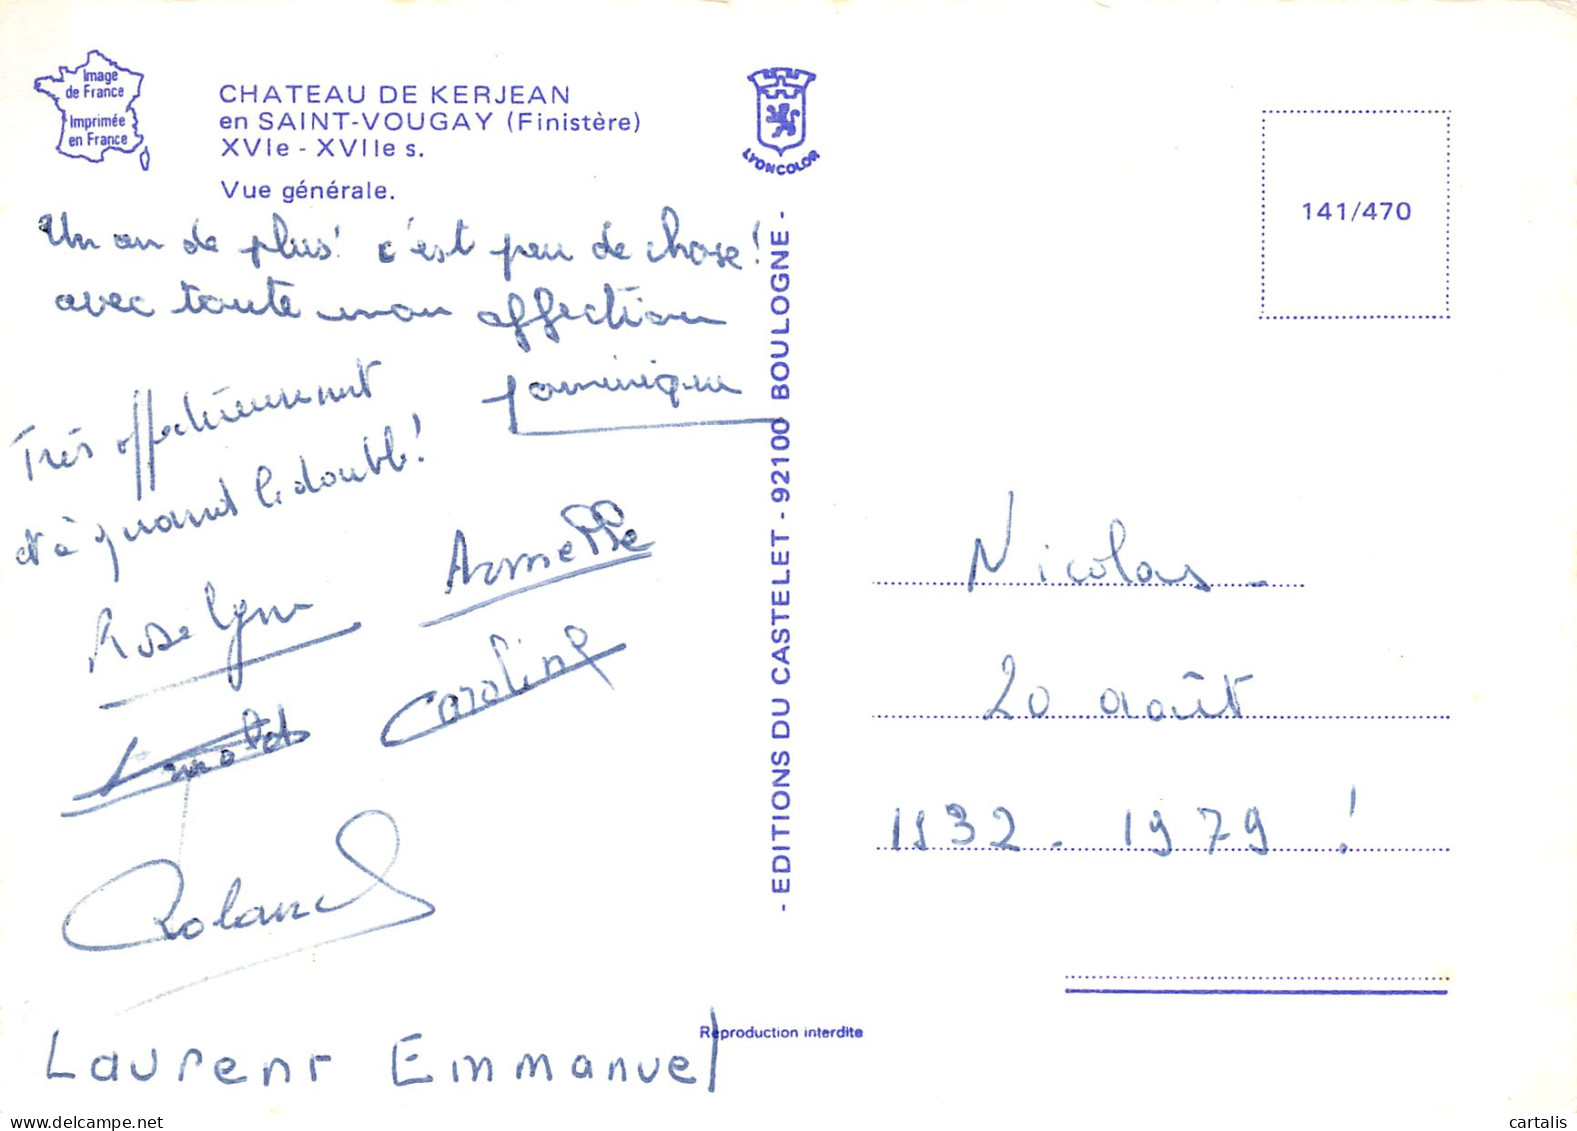 Image
de France
Imprimée
en France
CHATEAU DE KERJEAN
en SAINT-VOUGAY (Finistère)
XVIe - XVIIe s.
Vue générale.
LYONCOLOR
141/470
Un an de plus! c'est peu de chose!
avec toute mon affection
Dominique
Très affectueusement
et à quand le double!
Roselyne
Armelle
Caroline
Roland
Laurent Emmanuel
- EDITIONS DU CASTELET - 92100 BOULOGNE -
Reproduction interdite
Nicolas
20 août
1932 - 1979 !
cartalis